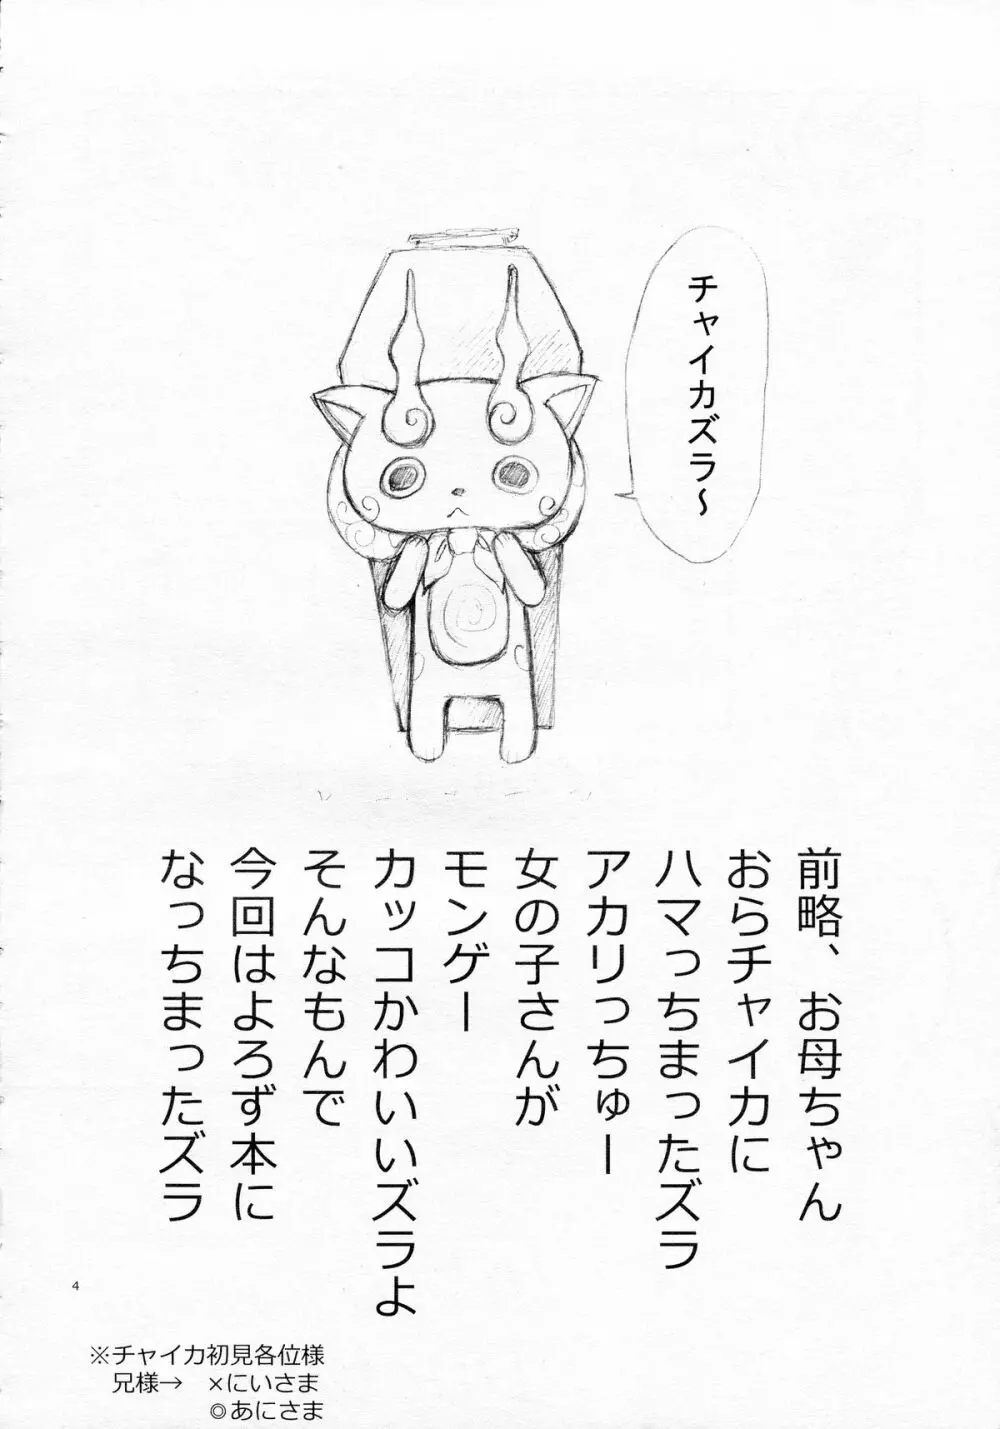 チャイカズラ～
前略、お母ちゃん
おらチャイカに
ハマっちまったズラ
アカリっちゅー
女の子さんが
モンゲー
カッコかわいいズラよ
そんなもんで
今回はよろず本に
なっちまったズラ
4
※チャイカ初見各位様
兄様→　×にいさま
◎あにさま